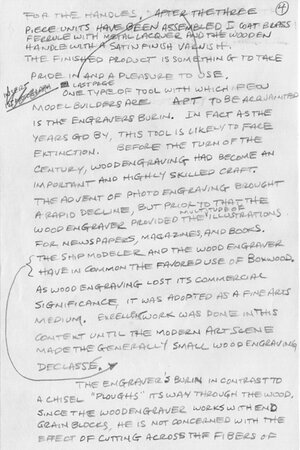 FOR THE HANDLES, AFTER THE THREE ④
PIECE UNITS HAVE BEEN ASSEMBLED I COAT BRASS
FERRULE WITH METAL LACQUER AND THE WOODEN
HANDLE WITH A SATIN FINISH VARNISH.
THE FINISHED PRODUCT IS SOMETHING TO TAKE
PRIDE IN AND A PLEASURE TO USE.
LAST PAGE
ONE TYPE OF TOOL WITH WHICH FEW
MODEL BUILDERS ARE APT TO BE ACQUAINTED
IS THE ENGRAVERS BURIN. IN FACT AS THE
YEARS GO BY, THIS TOOL IS LIKELY TO FACE
EXTINCTION. BEFORE THE TURN OF THE
CENTURY, WOOD ENGRAVING HAD BECOME AN
IMPORTANT AND HIGHLY SKILLED CRAFT.
THE ADVENT OF PHOTO ENGRAVING BROUGHT
A RAPID DECLINE, BUT PRIOR TO THAT THE
WOOD ENGRAVER PROVIDED THE MULTITUDE OF ILLUSTRATIONS
FOR NEWSPAPERS, MAGAZINES, AND BOOKS.
THE SHIP MODELER AND THE WOOD ENGRAVER
HAVE IN COMMON THE FAVORED USE OF BOXWOOD.
AS WOOD ENGRAVING LOST ITS COMMERCIAL
SIGNIFICANCE, IT WAS ADOPTED AS A FINE ARTS
MEDIUM. EXCELLENT WORK WAS DONE IN THIS
CONTENT UNTIL THE MODERN ART SCENE
MADE THE GENERALLY SMALL WOOD ENGRAVING
DECLASSE.
THE ENGRAVER'S BURIN IN CONTRAST TO
A CHISEL "PLOUGHS" ITS WAY THROUGH THE WOOD,
SINCE THE WOOD ENGRAVER WORKS WITH END
GRAIN BLOCKS, HE IS NOT CONCERNED WITH THE
EFFECT OF CUTTING ACROSS THE FIBERS OF